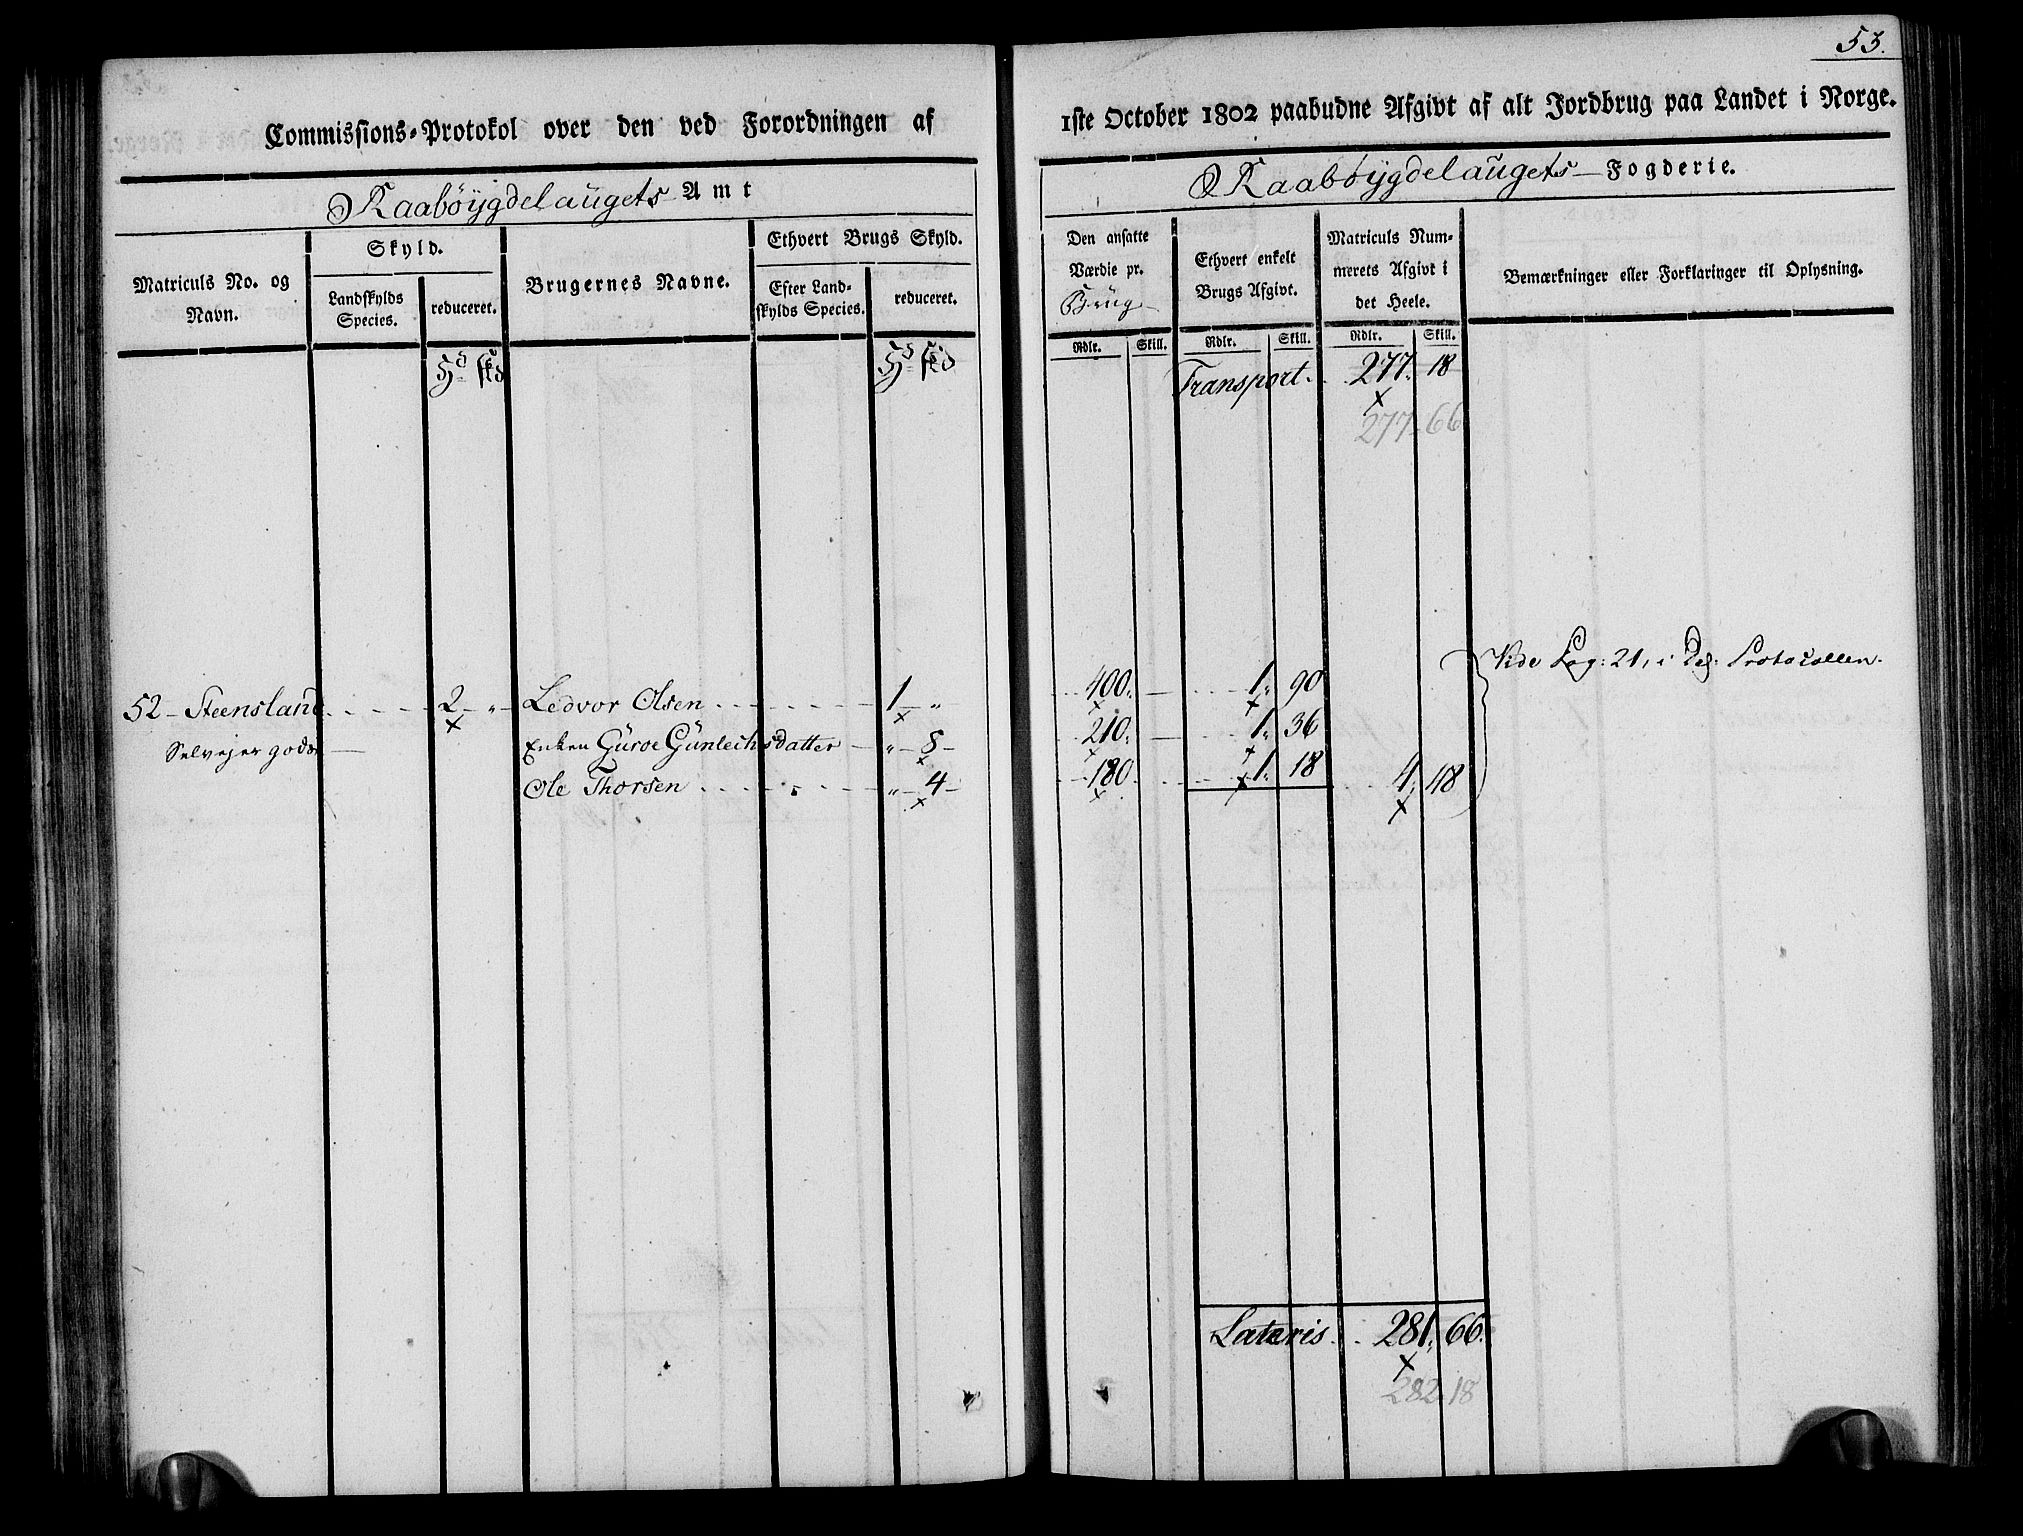 53.
Commissions-Protokol over den ved Forordningen af 1ste October 1802 paabudne Afgivt af alt Jordbrug paa Landet i Norge.
Raabøÿgdelaugets Amt
Raabøÿgdelaugets Fogderie.
Matriculs No. og Navn.
Skyld.
Landskylds Species.
reduceret.
Brugernes Navne.
Ethvert Brugs Skyld.
Efter Landskylds Species.
reduceret.
Den ansatte Værdie pr. Brug
Ethvert enkelt Brugs Afgivt.
Matriculs Nummerets Afgivt i det Heele.
Bemærkninger eller Forklaringer til Oplysning.
Rdlr. Skill. Rdlr. Skill. Rdlr. Skill.
Transport. 277. 18
277-66
Vide Pag: 21, i Protocollen.
52 - Steensland 2 - " - Ledvor Olsen 1 - " 400. 1. 90
Selvejer gods Enken Guroe Gunlechsdatter " - 8 - 210. 1. 36
Ole Thorsen " - 4 - 180. 1. 18 4. 48
Lateris 281. 66.
282. 18